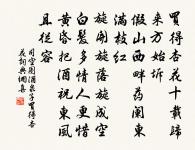 買得杏花十載歸
來方始坼
假山西畔藥闌東
滿枝紅
旋開旋落旋成空
白髮多情人更惜
黃昏把酒祝東風
且從容
司空圖酒泉子買得杏
花詞典網集